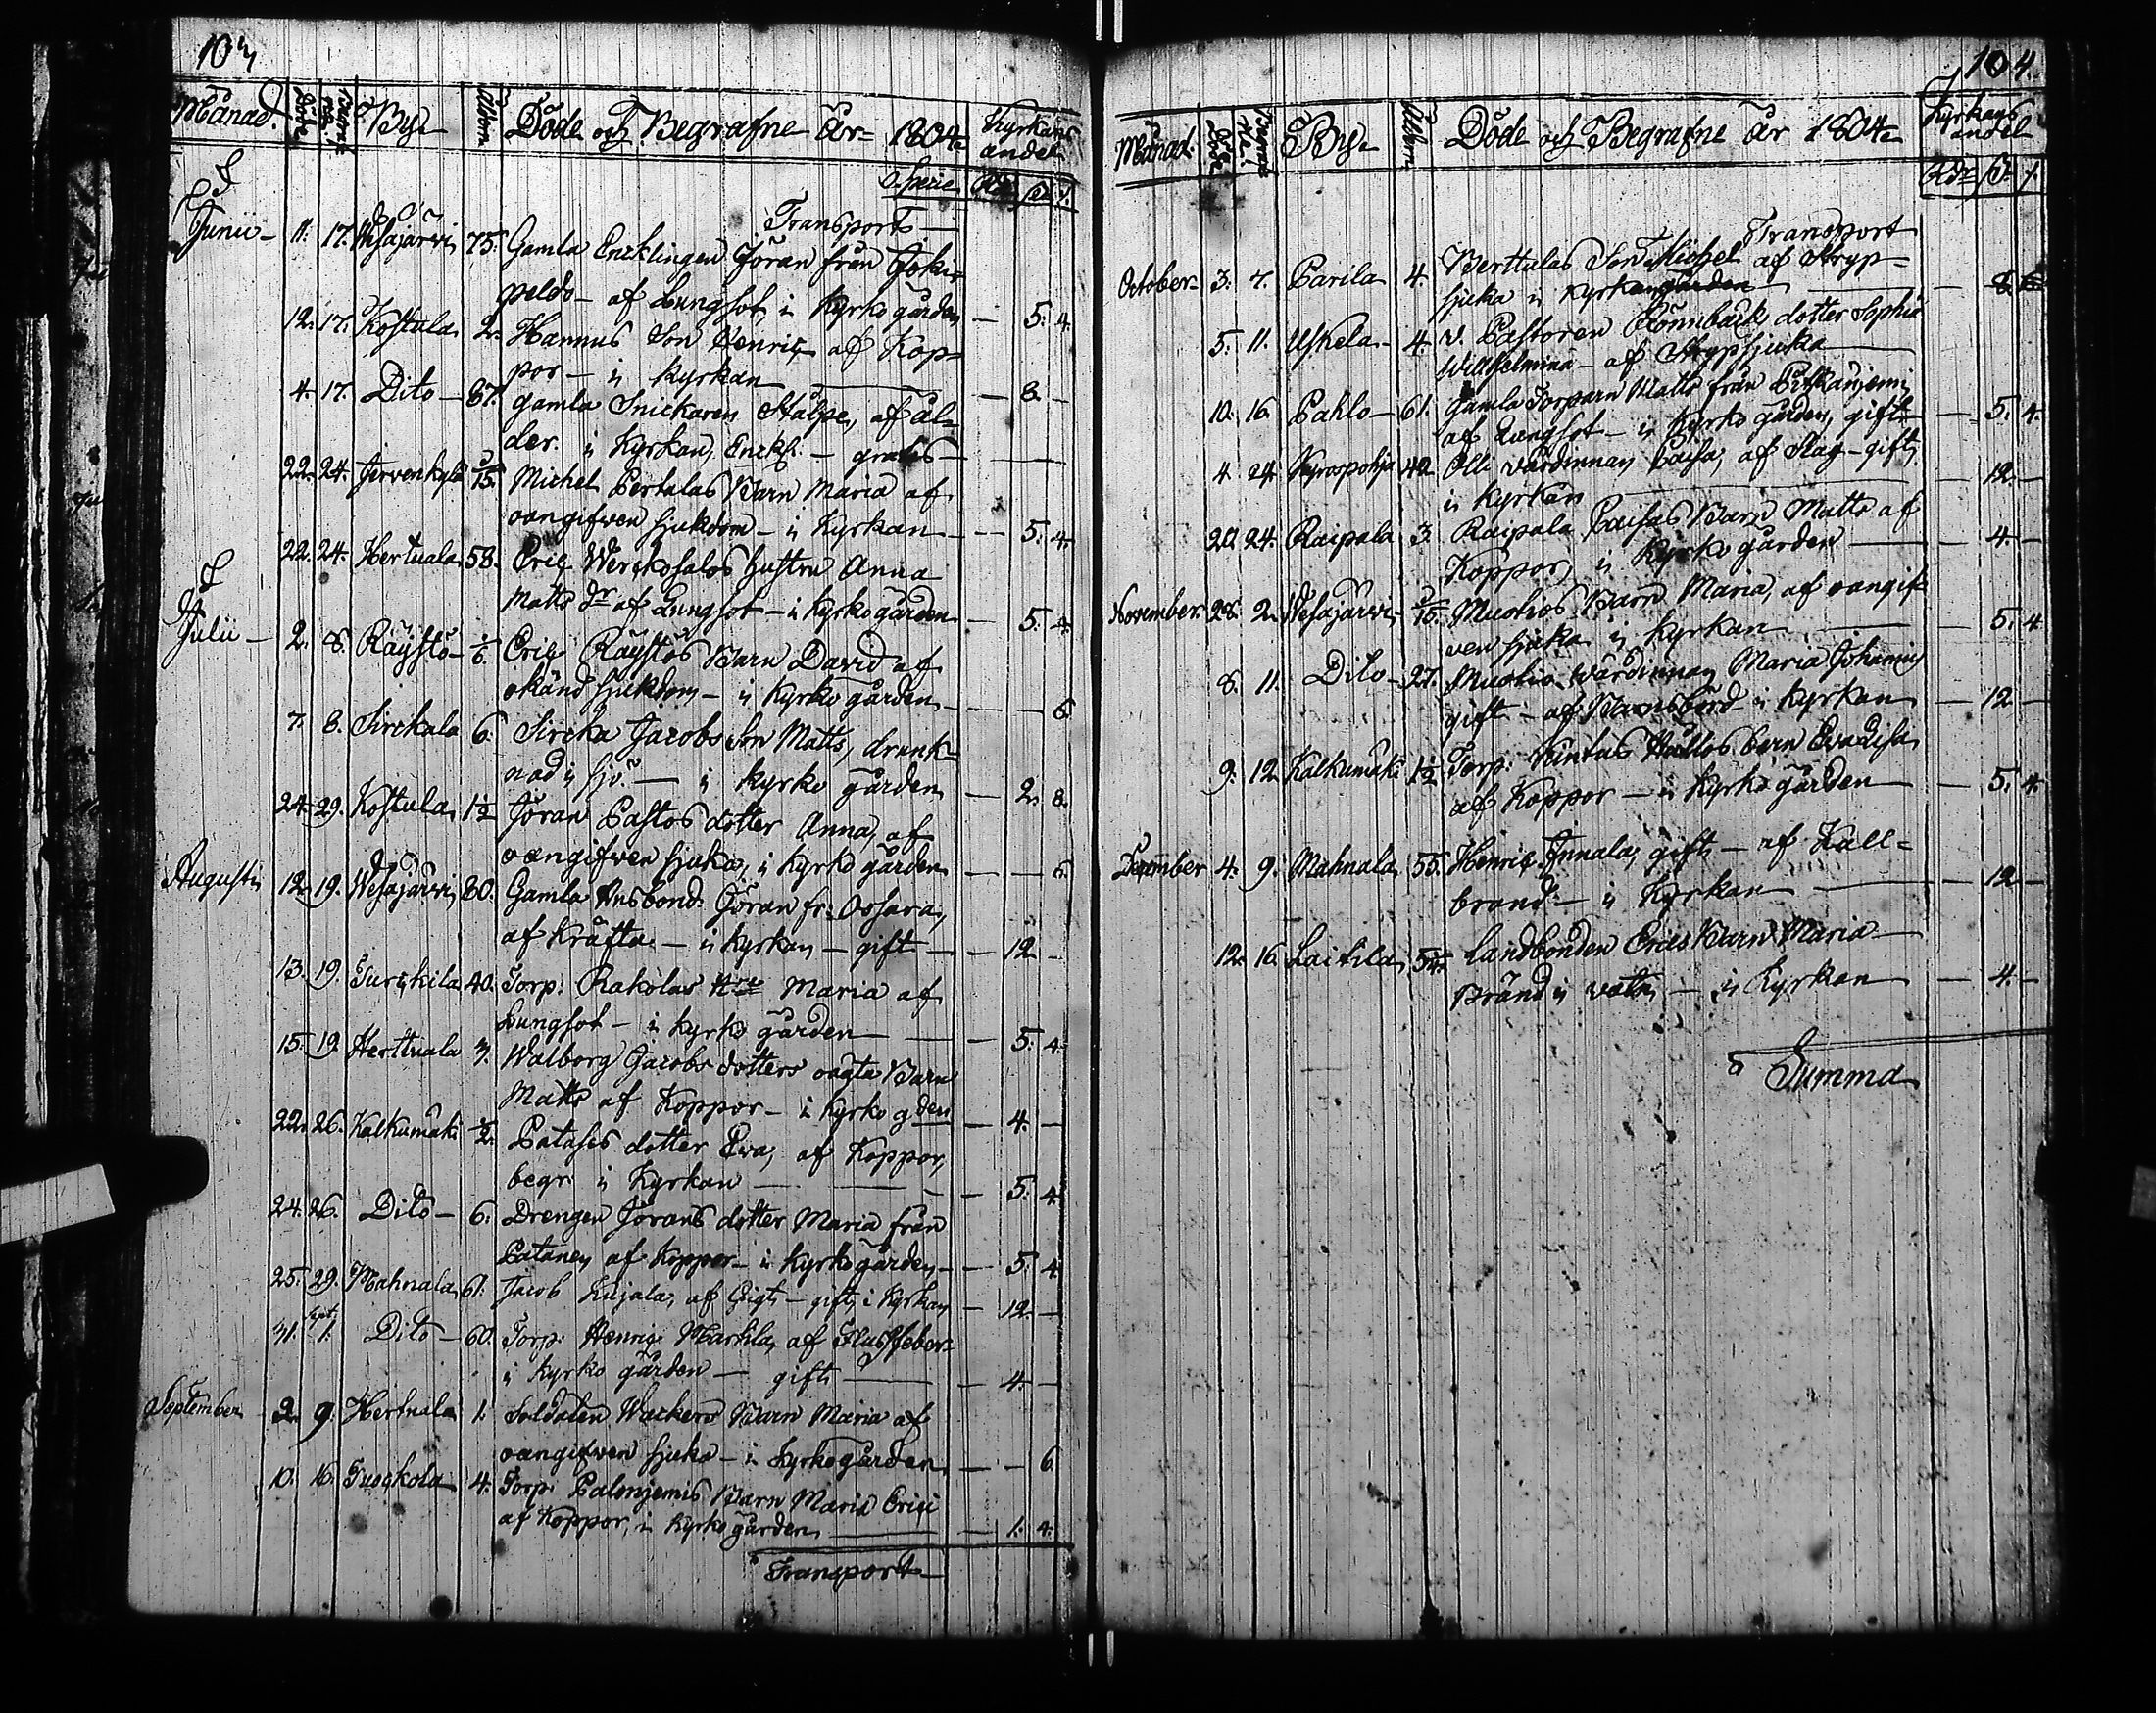 103
Månad. Döde Begraf-ne By Åldern Döde och Begrafne År 1804 Kyrkans andel
Specie Rdr ß
Transport
Junii 11. 17. Wesajärvi 75. Gamla Encklingen Jöran från Joki-
peldo af Lungsot, i Kyrko gården 5. 4.
12. 17. Kostula 2. Hannus Son Henric af Kop-
por i kyrkan 8.
4. 17. Dito 87. gamla Snickaren Stålpe, af ål-
der. i Kyrkan, Enckl. gratis
22. 24. Jervenkylä Michel Pertalas Barn Maria af
oangifven sjukdom i Kyrkan 5. 4.
22. 24. Hertuala 58. Eric Werckosalos hustru Anna
Matts dr af Lungsot i Kyrko gården 5. 4.
Julii 2. 8. Räystö Eric Räystös Barn David af
okänd sjukdom i Kyrko gården 6
7. 8. Sirckala 6. Sircka Jacobs Son Matts, drunk-
nad i sjö i kyrko gården 2. 8.
24. 29. Kostula 1½ Jöran Pastos dotter Anna, af
oangifven sjuka, i Kyrko gården 6.
Augusti 12. 19. Wesajärvi 80. Gamla Husbond. Jöran fr. Ossara,
af Kräfta i kyrkan gift 12
13. 19. Turckila 40. Torp: Rakolas Hru Maria af
Lungsot i kyrko gården 5. 4.
15. 19. Herttuala 3. Walborg Jacobs dotters oägta Barn
Matts af Koppor i Kyrko gden 4.
22. 26. Kalkumäki ½ Patases dotter Ewa, af Koppor,
begr: i Kyrkan 5. 4
24. 26. Dito 6. Drengen Jörans dotter Maria från
Patanen af Koppor i Kyrkogården 5. 4
25. 29. Mahnala 61. Jacob Kujala, af Gigt gift, i Kyrkan 12
31. Sept. 1. Dito 60. Torp: Henric Markla, af Flussfeber
i Kyrko gården gift 4.
September 2. 9. Hertuala 1. Soldaten Wackers Barn Maria af
oangifven sjuka i Kyrkogården 6
10. 16. Tuockola 4. Torp: Palonjemis Barn Maria Erici
af Koppor, i Kyrko gården 1. 4.
Transport
104
Månad. Döde By Åldern Döde och Begrafne År 1804 Kyrkans andel
Rdr ß
Transport
October 3. 7. Parila 4. Berttulas Son Michel af Stryp-
sjuka i Kyrkan 8.
5. 11. Uskela 4. v. Pastoren Rönnbäck dotter Sophia
Willhelmina af Strypsjuka
10. 16. Pahlo 61. Gamla Torparn Matts från Pitkäniemi
af Lungsot i Kyrko gården, gift 5. 4.
4. 24 Kyrospohja 42. Olli värdinnan Caisa, af Slag gift,
i kyrkan 12
20. 24. Raipala 3. Raipala Caisas Barn Matts af
Koppor, i Kyrko gården 4.
November 28. 2. Wesajärvi Muotios Barn Maria, af oangif-
ven sjuka i Kyrkan 5. 4
8. 11. Dito 27. Muotio wärdinnan Maria Johannis
gift af Barnsbörd i kyrkan 12
9. 12 Kalkumäki 1½ Torp: barn
af Koppor i Kyrkogården 5. 4.
December 4. 9. Mahnala 55. Henric Innala, gift af Kall-
brand i Kyrkan 12
12. 16. Laitila Landbonden Erics Barn Maria
Bränd i vatn i Kyrkan 4.
Summa